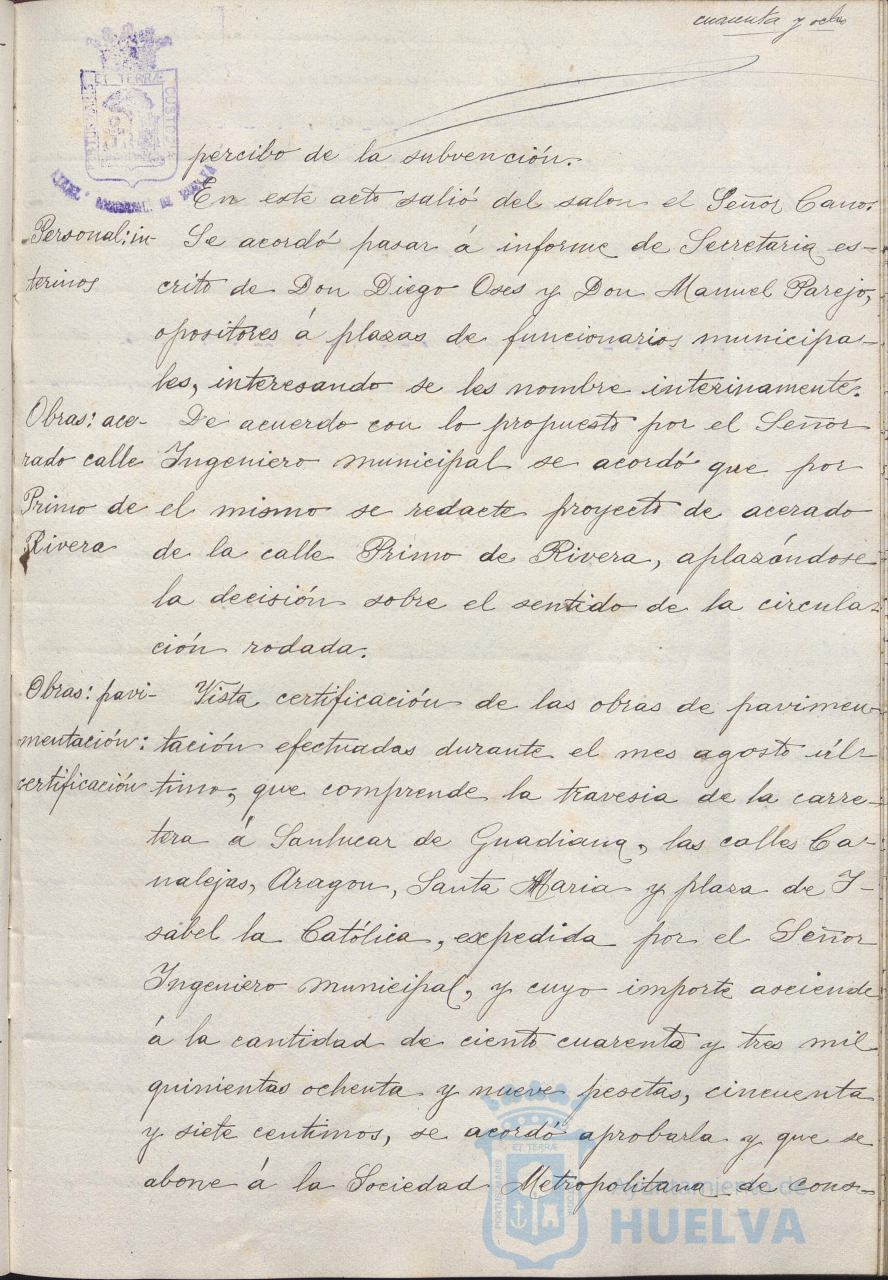 cuarenta y ocho
ET TERRÆ
CUSTO
percibo de la subvención.
En este acto salió del salon el Señor Cano.
Personal: in-
terinos
Se acordó pasar á informe de Secretaria es-
crito de Don Diego Oses y Don Manuel Parejo,
opositores á plazas de funcionarios municipa-
les, interesando se les nombre interinamente.
Obras: ace-
rado calle
Primo de
Rivera
De acuerdo con lo propuesto por el Señor
Ingeniero municipal se acordó que por
el mismo se redacte proyecto de acerado
de la calle Primo de Rivera, aplazándose
la decisión sobre el sentido de la circula-
ción rodada.
Obras: pavi-
mentación:
certificación
Vista certificación de las obras de pavimen-
tación efectuadas durante el mes agosto úl-
timo, que comprende la travesia de la carre-
tera á Sanlucar de Guadiana, las calles Ca-
nalejas, Aragon, Santa Maria y plaza de I-
sabel la Católica, expedida por el Señor
Ingeniero municipal, y cuyo importe asciende
á la cantidad de ciento cuarenta y tres mil
quinientas ochenta y nueve pesetas, cincuenta
y siete centimos, se acordó aprobarla y que se
abone á la Sociedad Metropolitana de cons-
PORTUS MARIS
ET TERRÆ
CUSTODIA
Ayuntamiento de
HUELVA